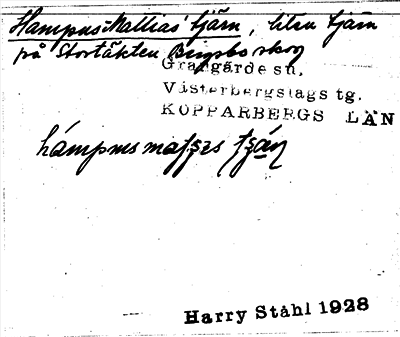 Hampus Mattias tjärn, liten tjärn
på Stortäkten Bergsbo skog
Grangärde sn,
Västerbergslags tg.
KOPPARBERGS LÄN
hámpus matses
Harry Ståhl 1928